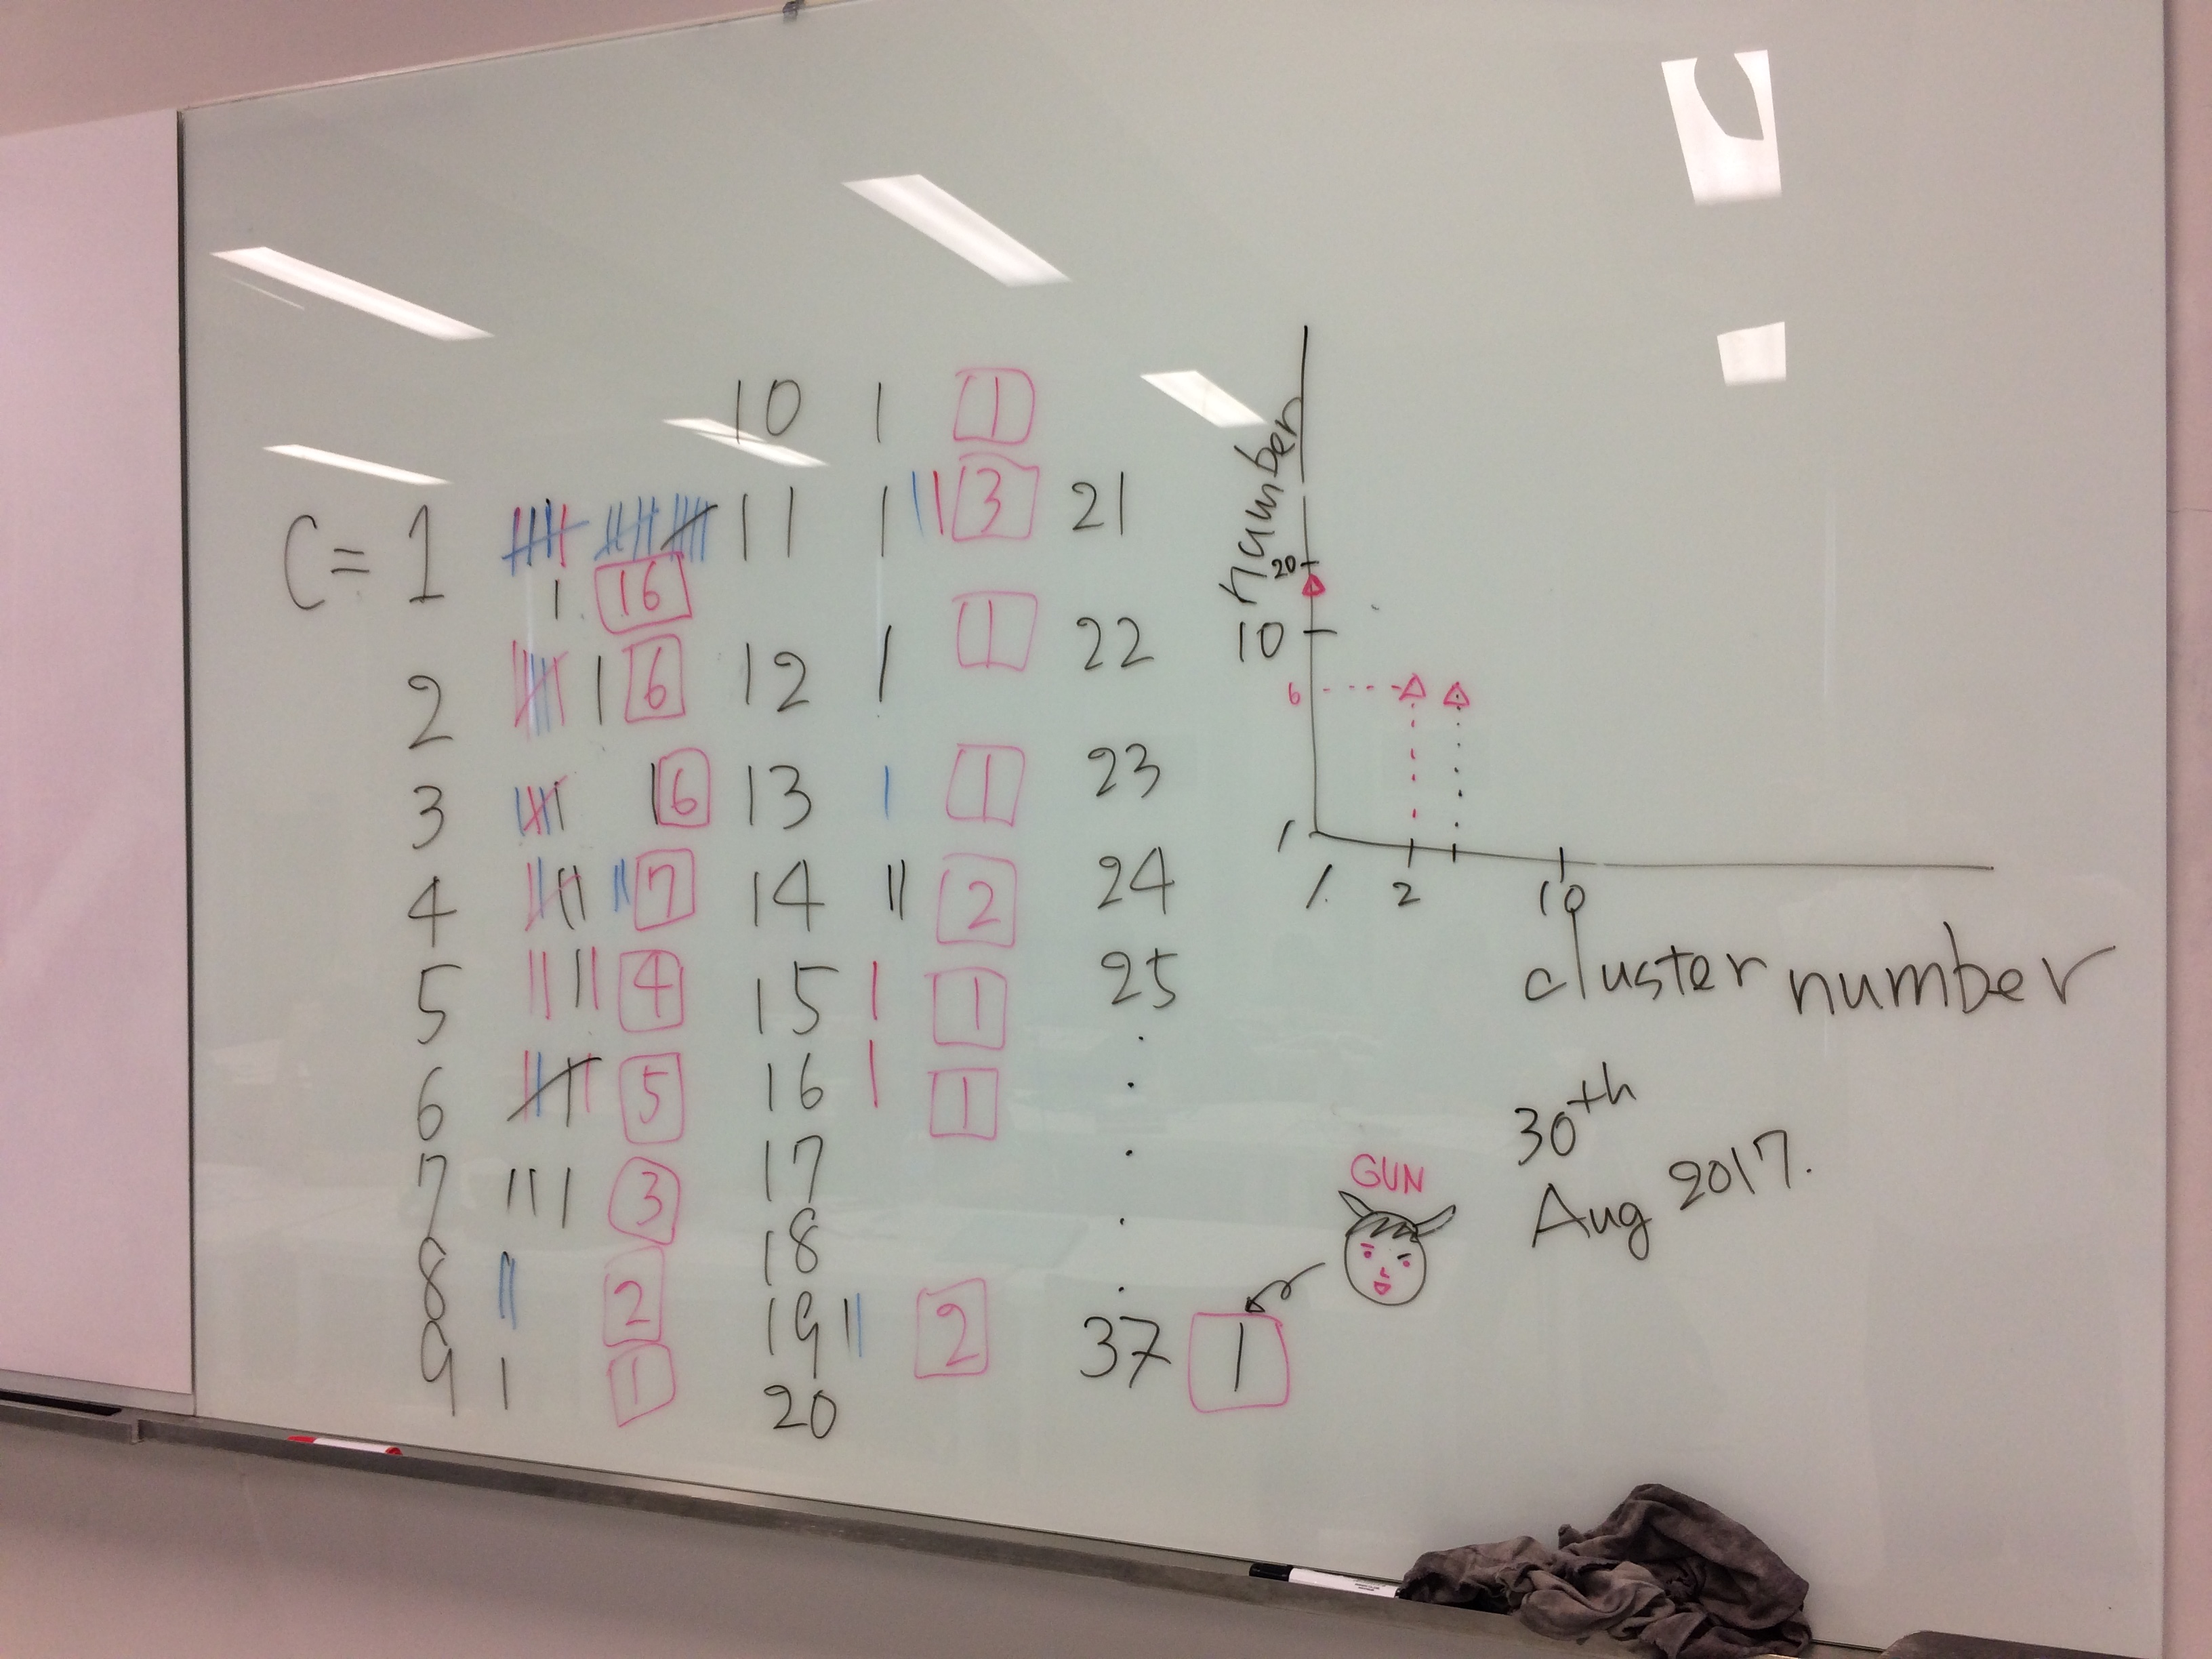 10 | 1
C = 1 11 | 3 21
| 16
2 | 6 12 | 1 22
3 | 6 13 | 1 23
4 || 7 14 || 2 24
5 |||| 4 15 | 1 25
6 5 16 | 1
7 ||| 3 17
8 || 2 18
9 | 1 19 || 2 37 1
20
number
20
10
6
1
1 2 10
cluster number
30th
Aug 2017.
GUN